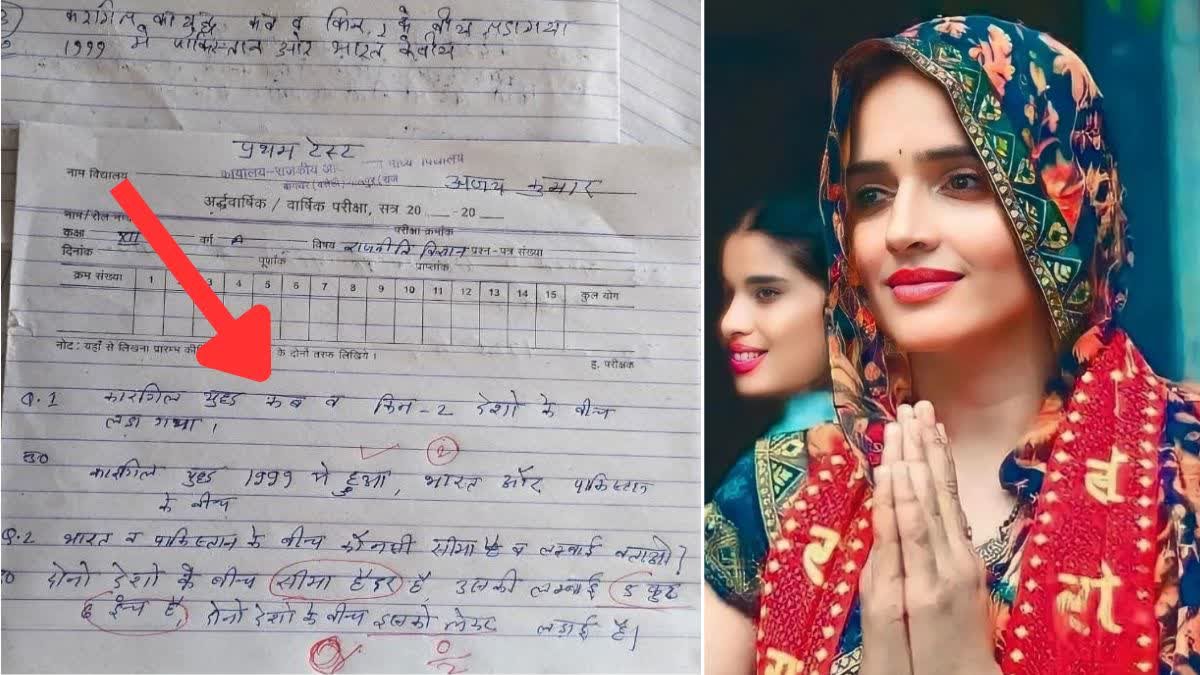 करगिल का युद्ध कब व किन २ के बीच लडा गया
1999 मे पाकिस्तान और भारत के बीच
प्रथम टेस्ट
नाम विद्यालय
अजय कुमार
अर्द्धवार्षिक / वार्षिक परीक्षा, सत्र 20 ___ -20 ___
परीक्षा क्रमांक
कक्षा XII वर्ग A विषय राजनीति विज्ञान प्रश्न-पत्र संख्या
दिनांक पूर्णांक प्राप्तांक
क्रम संख्या 1 3 4 5 6 7 8 9 10 11 12 13 14 15 कुल योग
नोट : यहाँ से लिखना प्रारम्भ के दोनों तरफ लिखिये ।
ह. परीक्षक
Q.1 कारगिल युद्ध कब व किन-2 देशो के बीच
लडा गया ।
2
उ०
कारगिल युद्ध 1999 मे हुआ, भारत और पाकिस्तान
के बीच
Q.2 भारत व पाकिस्तान के बीच कौनसी सीमा है व लम्बाई बताओ?
दोनो देशो के बीच सीमा हैदर है, उसकी लम्बाई 5 फुट
6 इंच है, दोनो देशो के बीच इसको लेकर लडाई है।
0
0/2